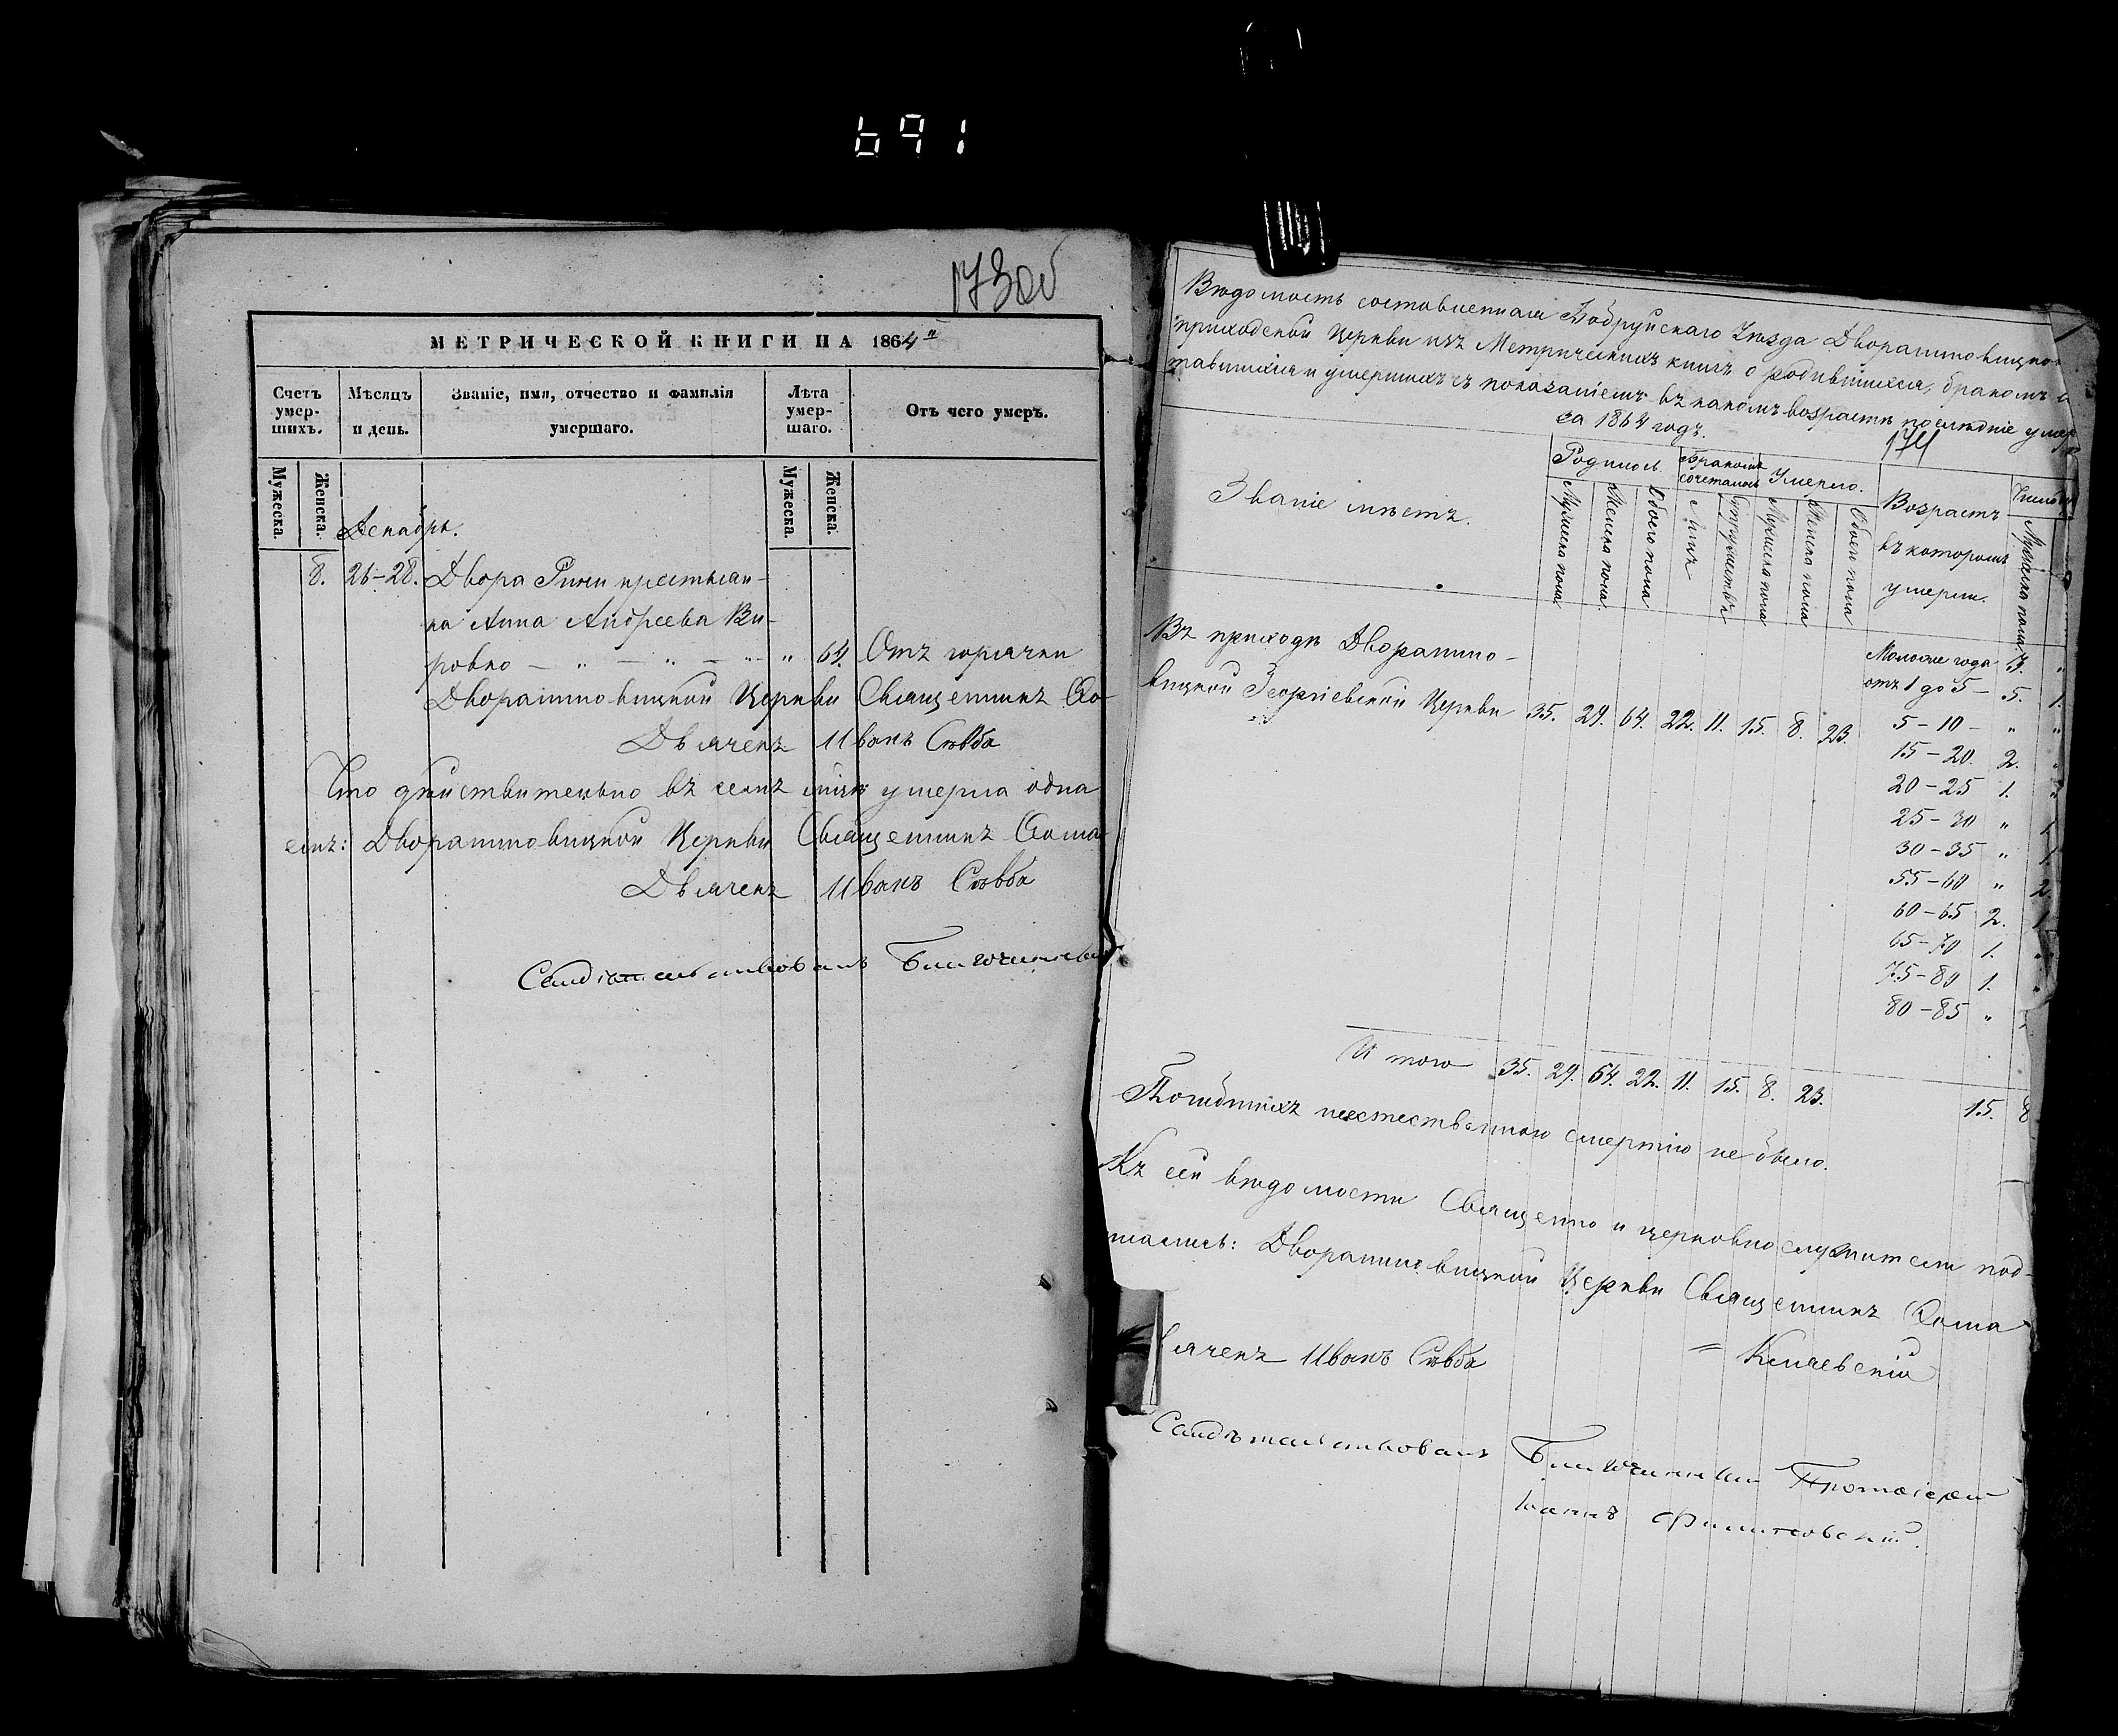 691
173об
МЕТРИЧЕСКОЙ КНИГИ НА 1864й
Счетъ умер-шихъ.
Мѣсяцъ и день.
Званіе, имя, отчество и фамилія умершаго.
Лѣта умер-шаго.
Отъ чего умеръ.
Мужеска.
Женска.
Мужеска.
Женска.
Декабрь.
8. 26-28. Двора крестьян-
ка Анна Андреева Ви-
ровко — " — " — " — " 64. Отъ горячки
Двораниновицкой Церкви Священникъ Ѳо-
Дьячекъ Иванъ Сѣвба
Что дѣйствительно въ семъ мцѣ умерла одна
емъ: Двораниновицкой Церкви Священникъ Ѳома
Дьячекъ Иванъ Сѣвба
Свидѣтельствовалъ Благочинный
Вѣдомость составленная Бобруйскаго Уѣзда Двораниновицкой
приходской Церкви изъ Метрическихъ книгъ о родившихся, бракомъ с
тавшихся и умершихъ съ показаніемъ въ какомъ возрастѣ послѣдніе умер
за 1864 годъ.
174
Званіе мѣстъ.
Родилось
Бракомъ сочеталось
Умерло.
Возрастъ въ которомъ умерли.
Число
Мужеска пола
Женска пола
Обоего пола
Лицъ
Супружествъ
Мужеска пола
Женска пола
Обоего пола
Мужеска пола
Въ приходѣ Дворанино-
вицкой Георгіевской Церкви 35. 29. 64. 22. 11. 15. 8. 23.
Моложе года 3. "
отъ 1 до 5 — 5. 1.
5 — 10 — " "
15 — 20. 2. "
20 — 25 1. "
25 — 30 " 1
30 — 35 " 1.
55 — 60 " 2.
60 — 65 2. 1
65 — 70 1. "
75 — 80 1. "
80 — 85 "
И того 35. 29. 64. 22. 11. 15. 8. 23. 15. 8
Погибшихъ неестественною смертію не было.
Къ сей вѣдомости Священно и церковнослужители под-
писались: Двораниновицкой Церкви Священникъ Ѳома
ьячекъ Иванъ Сѣвба = Кмчевскій
Свидѣтельствовалъ Благочинный Протоіерей
Іоаннъ